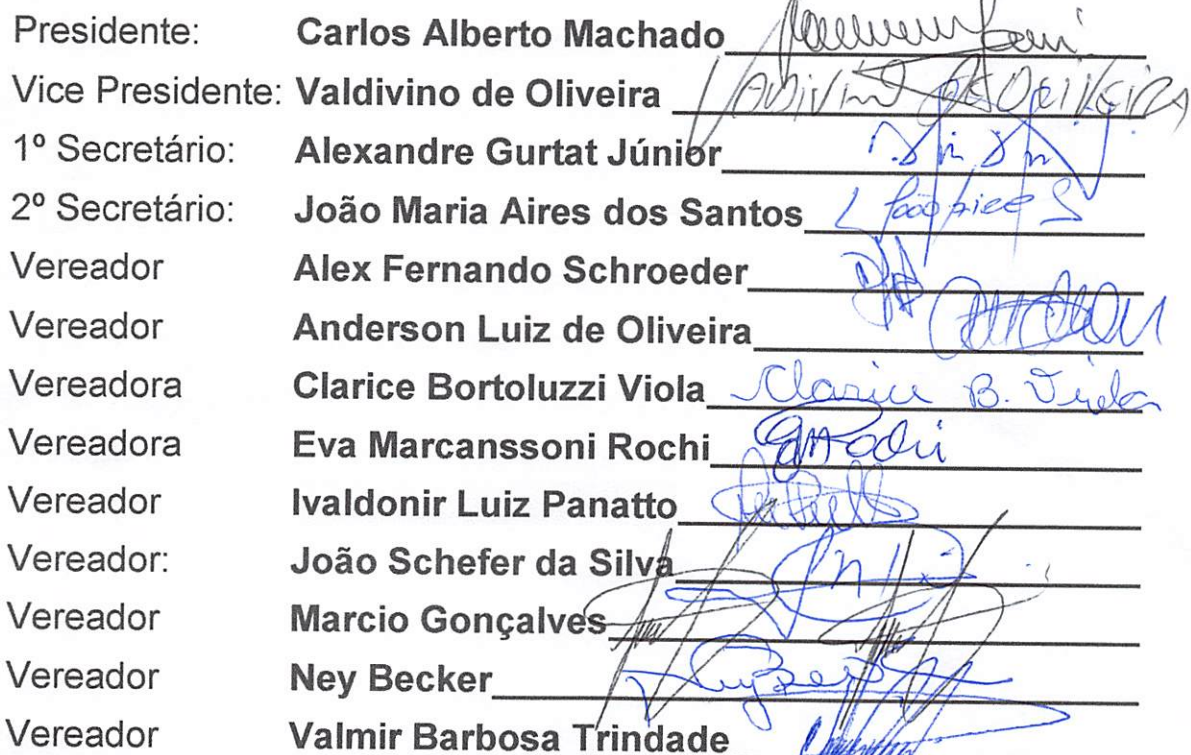 Presidente: Carlos Alberto Machado
Vice Presidente: Valdivino de Oliveira Valdivino de Oliveira
1º Secretário: Alexandre Gurtat Júnior
2º Secretário: João Maria Aires dos Santos
Vereador Alex Fernando Schroeder
Vereador Anderson Luiz de Oliveira
Vereadora Clarice Bortoluzzi Viola Clarice B. Viola
Vereadora Eva Marcanssoni Rochi
Vereador Ivaldonir Luiz Panatto
Vereador: João Schefer da Silva
Vereador Marcio Gonçalves
Vereador Ney Becker
Vereador Valmir Barbosa Trindade